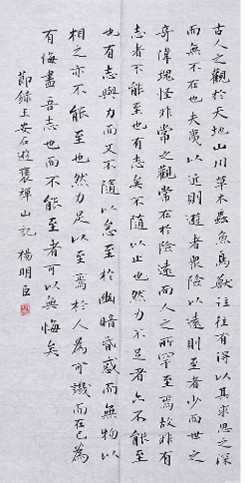 古人之觀於天地山川草木蟲魚鳥獸往往有得以其求思之深
而無不在也夫夷以近則遊者衆險以遠則至者少而世之
奇偉瑰怪非常之觀常在於險遠而人之所罕至焉故非有
志者不能至也有志矣不隨以止也然力不足者亦不能至
也有志與力而又不隨以怠至於幽暗昏惑而無物以
相之亦不能至也然力足以至焉於人為可譏而在己為
有悔盡吾志也而不能至者可以無悔矣
節録王安石遊褒禪山記 楊明臣